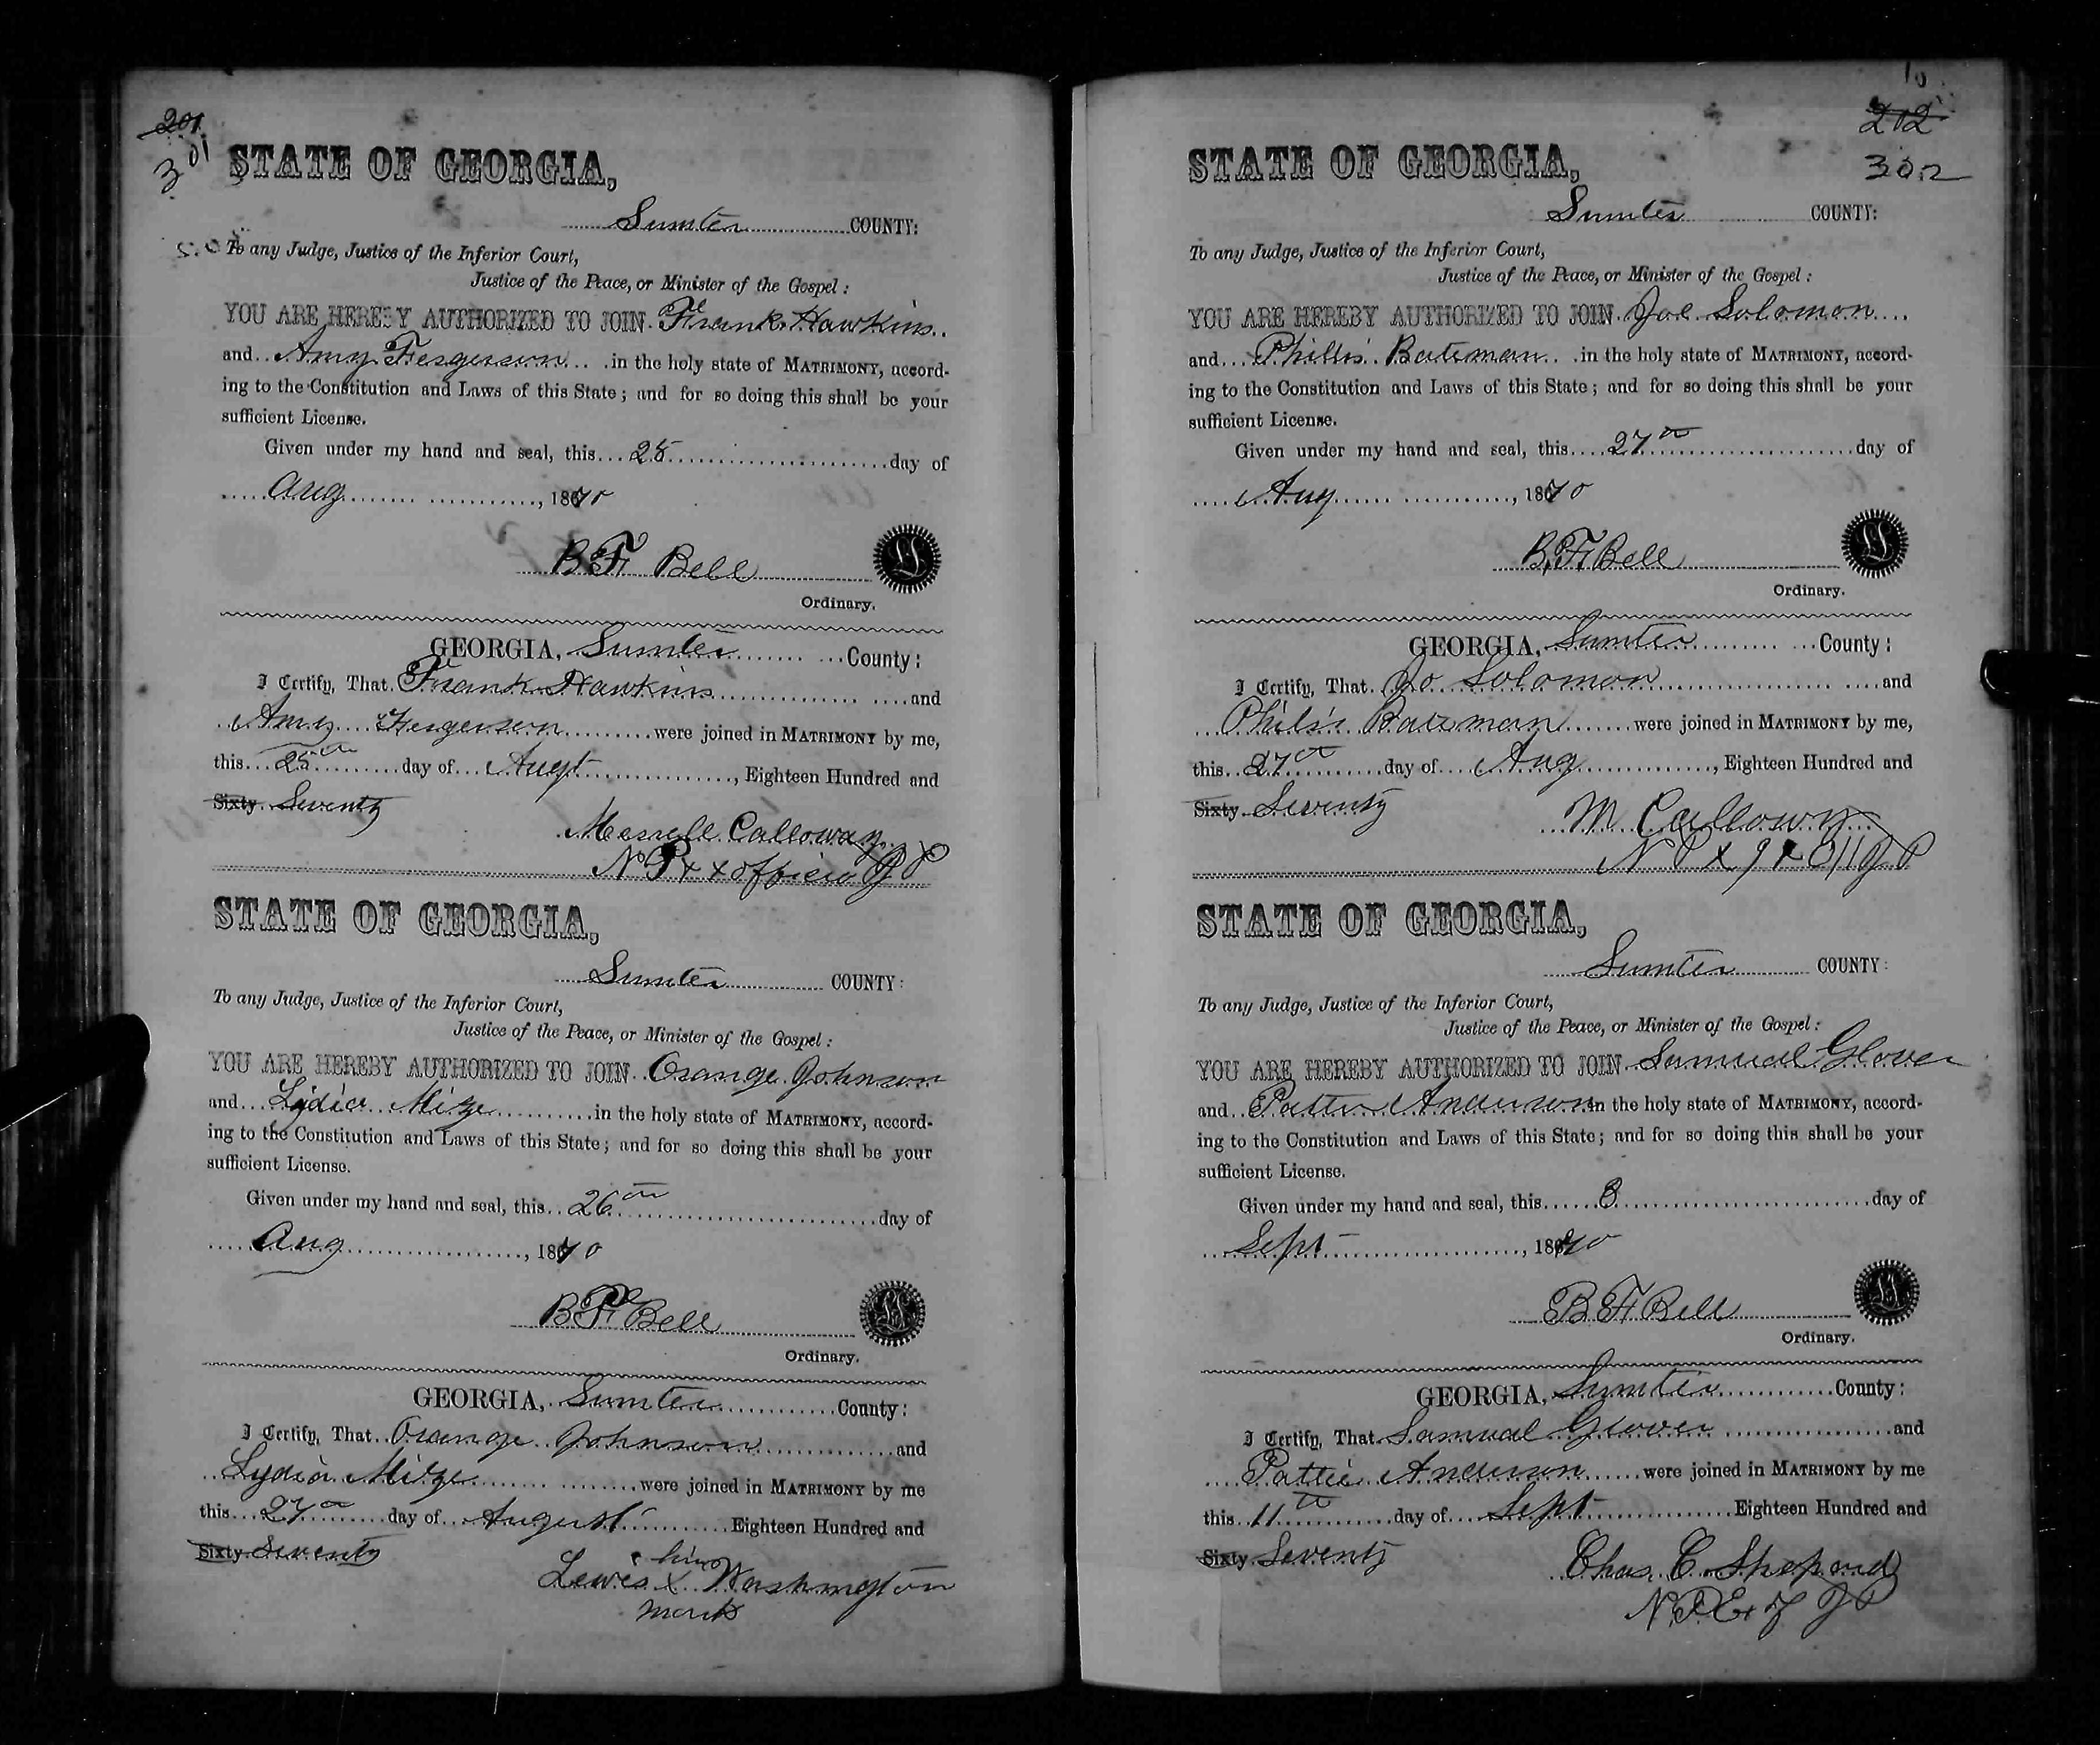 201
301
STATE OF GEORGIA,
Sumter COUNTY:
To any Judge, Justice of the Inferior Court,
Justice of the Peace, or Minister of the Gospel:
YOU ARE HEREBY AUTHORIZED TO JOIN Frank Hawkins
and Amy Fergerson in the holy state of MATRIMONY, accord-
ing to the Constitution and Laws of this State; and for so doing this shall be your
sufficient License.
Given under my hand and seal, this 25 day of
Aug, 1870
B F Bell
Ordinary.
GEORGIA, Sumter County:
I Certify, That Frank Hawkins and
Amy Fergerson were joined in MATRIMONY by me,
this 25th day of Augt, Eighteen Hundred and
Sixty Seventy
Merrell Calloway
N P & x officio J P
STATE OF GEORGIA,
Sumter COUNTY:
To any Judge, Justice of the Inferior Court,
Justice of the Peace, or Minister of the Gospel:
YOU ARE HEREBY AUTHORIZED TO JOIN Orange Johnson
and Lydia Mize in the holy state of MATRIMONY, accord-
ing to the Constitution and Laws of this State; and for so doing this shall be your
sufficient License.
Given under my hand and seal, this 26th day of
Aug, 1870
B F Bell
Ordinary.
GEORGIA, Sumter County:
I Certify, That Orange Johnson and
Lydia Mize were joined in MATRIMONY by me
this 27th day of August Eighteen Hundred and
Sixty Seventy
his
Lewis X Washington
mark
202
302
STATE OF GEORGIA,
Sumter COUNTY:
To any Judge, Justice of the Inferior Court,
Justice of the Peace, or Minister of the Gospel:
YOU ARE HEREBY AUTHORIZED TO JOIN Joe Solomon
and Phillis Bateman in the holy state of MATRIMONY, accord-
ing to the Constitution and Laws of this State; and for so doing this shall be your
sufficient License.
Given under my hand and seal, this 27th day of
Aug, 1870
B, F, Bell
Ordinary.
GEORGIA, Sumter County:
I Certify, That Jo Solomon and
Philis Bateman were joined in MATRIMONY by me,
this 27th day of Aug, Eighteen Hundred and
Sixty Seventy
M Calloway
N P J P
STATE OF GEORGIA,
Sumter COUNTY:
To any Judge, Justice of the Inferior Court,
Justice of the Peace, or Minister of the Gospel:
YOU ARE HEREBY AUTHORIZED TO JOIN Samual Glover
and Pattie Anderson in the holy state of MATRIMONY, accord-
ing to the Constitution and Laws of this State; and for so doing this shall be your
sufficient License.
Given under my hand and seal, this 8 day of
Sept, 1870
B F Bell
Ordinary.
GEORGIA, Sumter County:
I Certify, That Samual Glover and
Pattie Anderson were joined in MATRIMONY by me
this 11th day of Sept Eighteen Hundred and
Sixty Seventy
Chas. C. Shepard
N. P. Ex J P